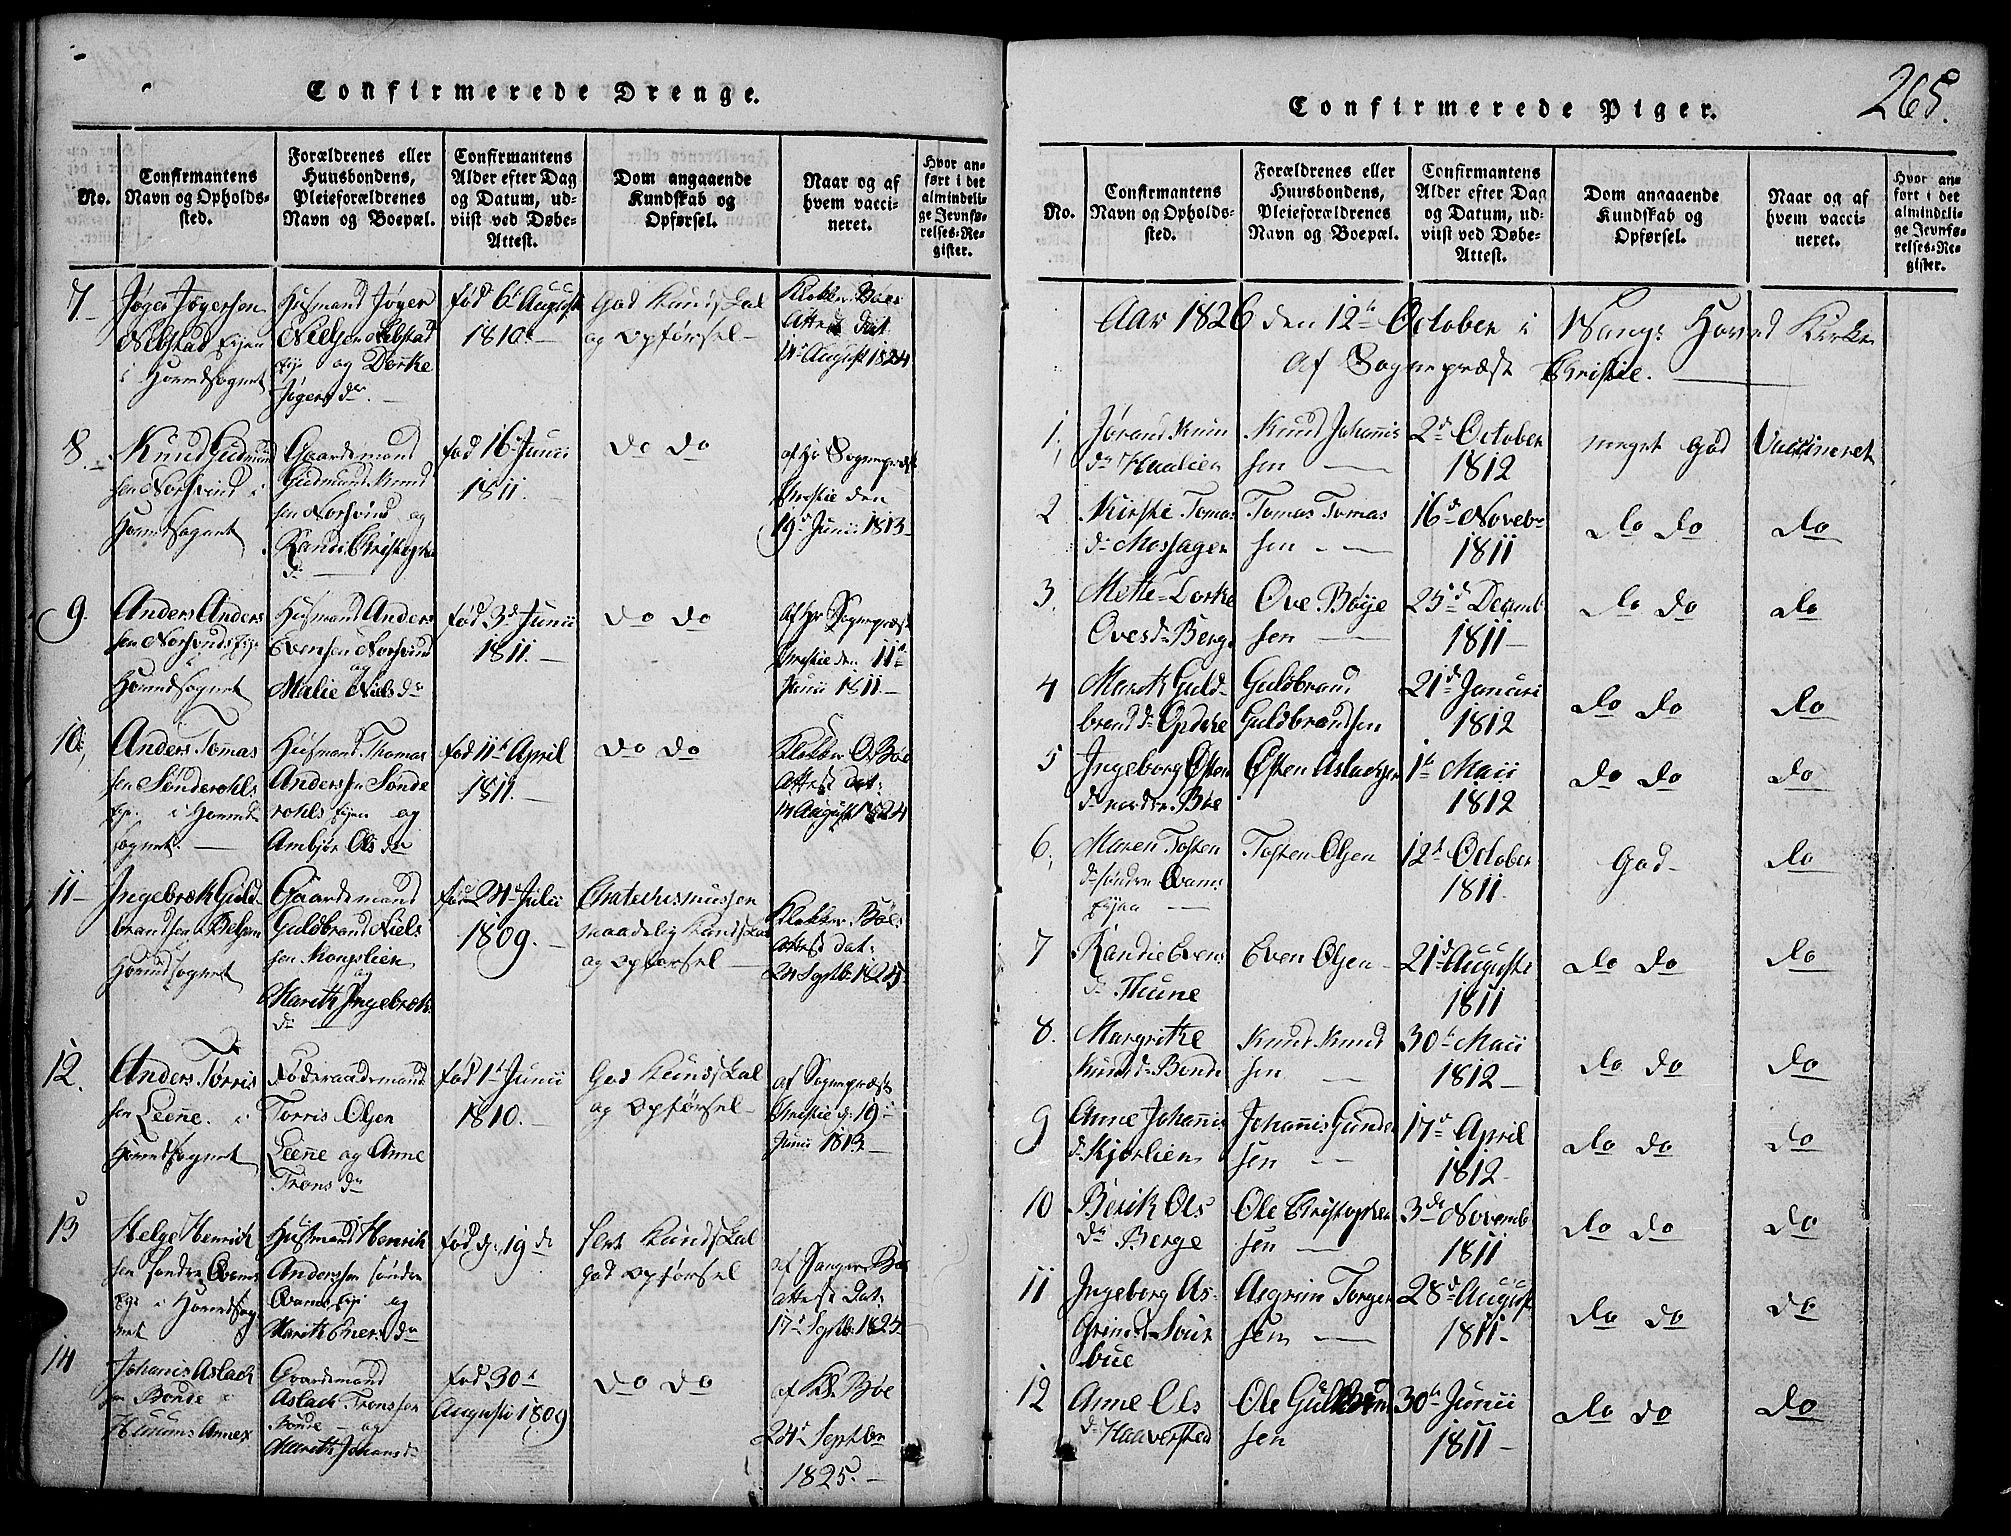 Confirmerede Drenge.
No.
Confirmantens Navn og Opholds-sted.
Forældrenes eller Huusbondens, Pleieforældrenes Navn og Boepæl.
Confirmantens Alder efter Dag og Datum, ud-viist ved Døbe-Attest.
Dom angaaende Kundskab og Opførsel.
Naar og af hvem vacci-neret.
Hvor an-ført i det almindeli-ge Jevnfø-relses-Re-gister.
7.
Jøger Jøgersen
i Hovedsognet
Husmand Jøger
Nielsen
og Dorthe
Jøgers dr
fød 6te August
1810
God Kundskab
og Opførsel
Klokker Bøes
Attest dat:
14 August 1824
8.
Knud Gudmund
sen Norsvind i
Hovedsognet
Gaardemand
Gudmund Knud
sen Norsvind og
Randi Christophe
dr
fød 16 Junii
1811.
do do
af Hr Sognepræst
Christie den
19de Junii 1813
9.
Anders Anders
sen Norsvinds Eje
Hovedsognet
Husmand Anders
Evensen Norsvind
og
Malie Niels dr
fød 3d Junii
1811.
do do
af Hr Sognepræst
Christie den 11te
Junii 1811
10
Anders Tomas
sen Sønderohls
i Hoved
sognet
Husmand Thomas
Anderssen Sønde
rohls Ejen og
Ambjør Ols dr
fød 11te April
1811.
do do
Klokker O Bøe
attest dat:
14 August 1824
11
Ingebræk Guld
brandsen
Hovedsognet
Gaardemand
Guldbrand Niels
sen Kongslien
og
Marith Ingebræk
dr
fød 24 Julii
1809.
maadelig Kundskab
og Opførsel
Klokker Bøes
attest dat:
24 Septb: 1825
12.
Anders Torris
sen Leene i
Hovedsognet
Føderaadsmand
Torris Olsen
Leene og Anne
Trons dr
fød 1te Junii
1810.
God Kundskab
og Opførsel
af Sognepræst
Christie d: 19
Junii 1813
13
Helge Henrick
sen søndre Qvams
Eje i Hovedsog
net
Husmand Henrik
Anderssen søndre
Qvams Eje og
Marith Eners dr
fød d: 19 de
Kundskab
god Opførsel
af Sanger Bøe
attest Dat:
17 Septb: 1825
14
Johanis Aslack
sen Bonde i
Hurums Annex
Gaardemand
Aslack Tronssen
Bonde og
Marith Johans d
fød 30te
Augusti 1809
do do
af Kl. Bøe
24 Septbr
1825.
265.
Confirmerede Piger.
No.
Confirmantens Navn og Opholds-sted.
Forældrenes eller Huusbondens, Pleieforældrenes Navn og Boepæl.
Confirmantens Alder efter Dag og Datum, ud-viist ved Døbe-Attest.
Dom angaaende Kundskab og Opførsel.
Naar og af hvem vacci-neret.
Hvor an-ført i det almindeli-ge Jevnfø-relses-Re-gister.
Aar 1826 den 12te October i Vangs Hoved Kirke
af Sognepræst Christie.
1.
Jørand Knu
dr Haalien
Knud Johannis
sen
2d October
1812
meget God
Vaccineret
2
Kirstie Tomas
dr Mossagen
Tomas Tomas
sen
16de Novebr
1811
do do
do
3.
Mette Dorthe
Ovesdr Berg
Ove Bøye
sen
25d Decemb
1811
do do
do
4
Marith Guld
brand dr Opdehe
Guldbrand
Guldbrandsen
21d Januari
1812
do do
do
5
Ingeborg Østen
dr nordre Bøe
Østen Aslacksen
1te Maii
1812
do do
do
6.
Maren Tosten
dr søndre Qvams
Ejen
Tosten Olsen
12te October
1811.
God
do
7
Randie Evens
dr Thune
Even Olsen
21d Augusti
1811
do do
do
8.
Margrithe
Knud dr Bonde
Knud Knud
sen
30te Maii
1812
do do
do
9
Anne Johannis
dr Kjørlien
Johannis Gunder
sen
17de April
1812
do do
do
10
Berik Ols
dr Berge
Ole Christophen
sen
3de Novemb
1811
do do
do
11
Ingeborg As
Grims dr Sour
bue
Asgrim Torger
sen
28d August
1811
do do
do
12
Anne Ols
dr Haaversted
Ole Guldbrand
sen
30te Junii
1811
do do
do